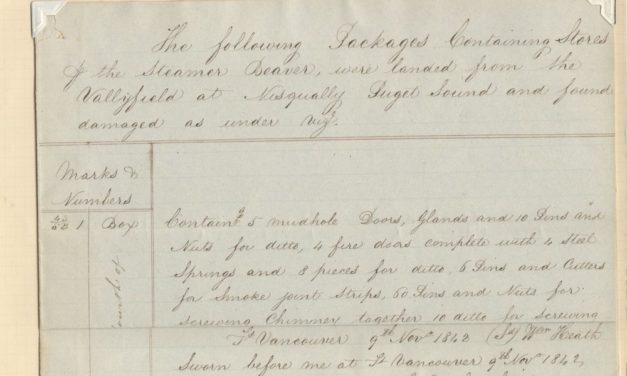 The following Packages, Containing Stores
of the Steamer Beaver, were landed from the
Vallyfield at Nisqually Puget Sound and found
damaged as under vizt.
Marks &
Numbers
1 Box
Containg 5 mudhole Doors, Glands and 10 Pins and
Nuts for ditto, 4 fire doors complete with 4 Steel
Springs and 8 pieces for ditto, 6 Pins and Cutters
for Smoke joint Strips, 60 Pins and Nuts for
screwing Chimner together 10 ditto for screwing
Ft Vancouver 9th Novr 1842 (Sd) Wm Heath
Sworn before me at Ft Vancouver 9th Novr 1842,